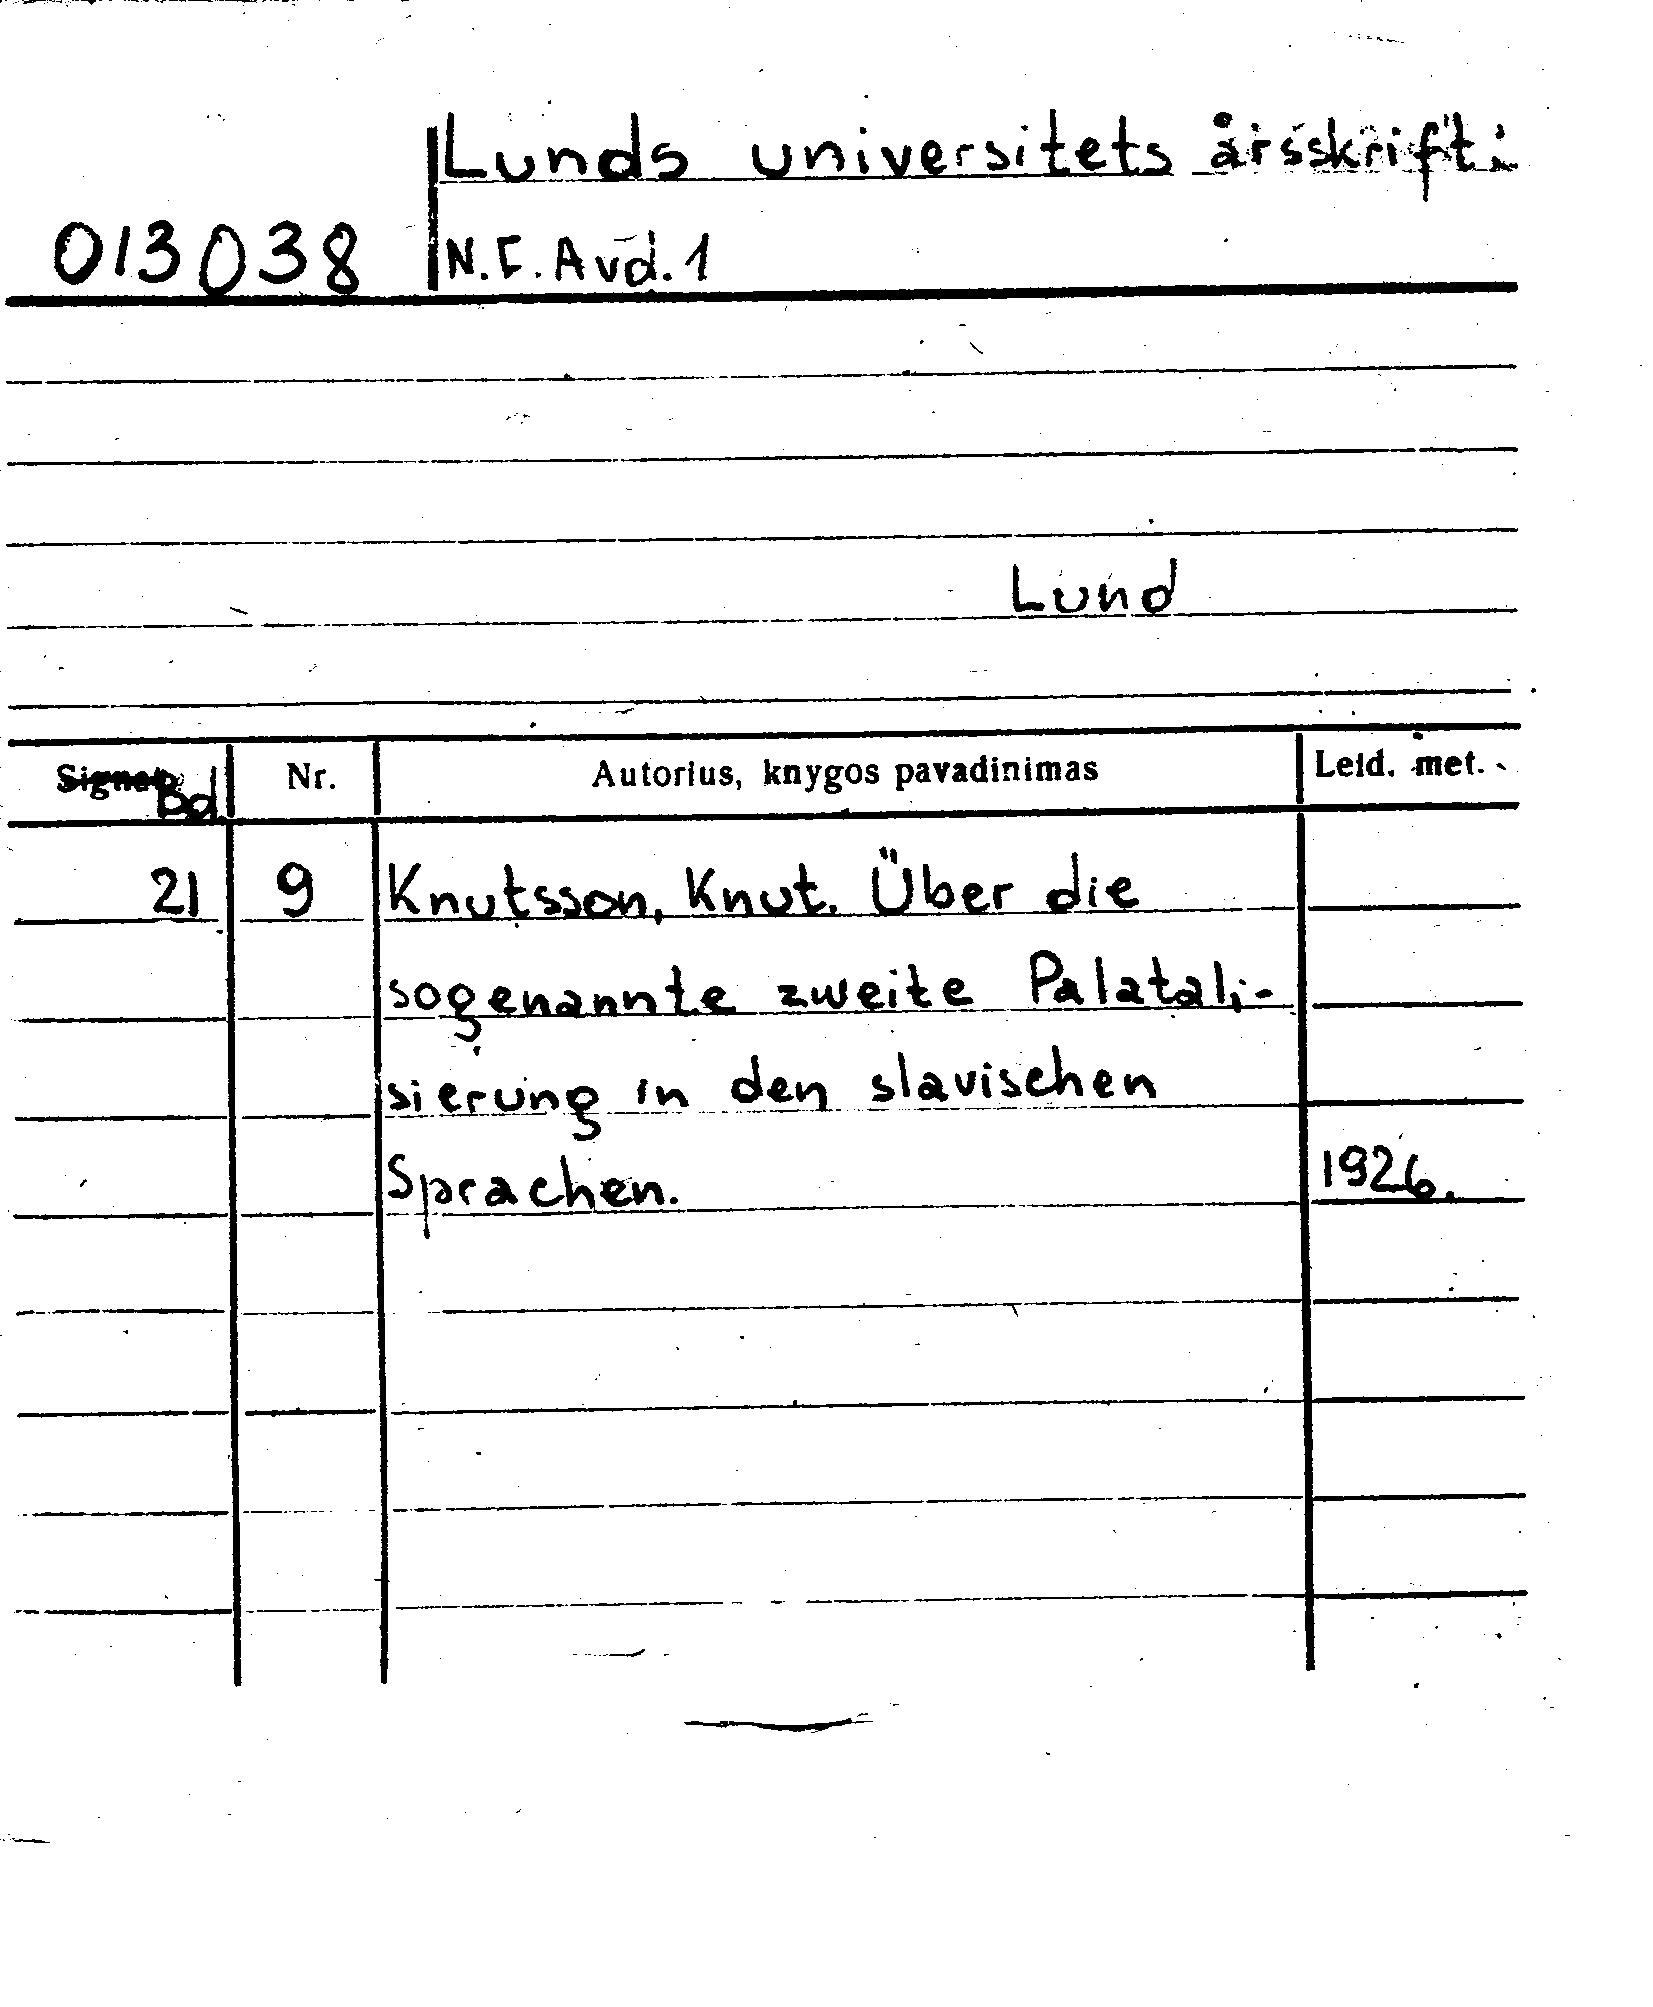 Lunds universitets årsskrift:
013038 N.F. Avd. 1
Lund
Bd Nr. Autorius, knygos pavadinimas Leid. met.
21 9 Knutsson, Knut. Über die
sogenannte zweite Palatali-
sierung in den slavischen
Sprachen. 1926.